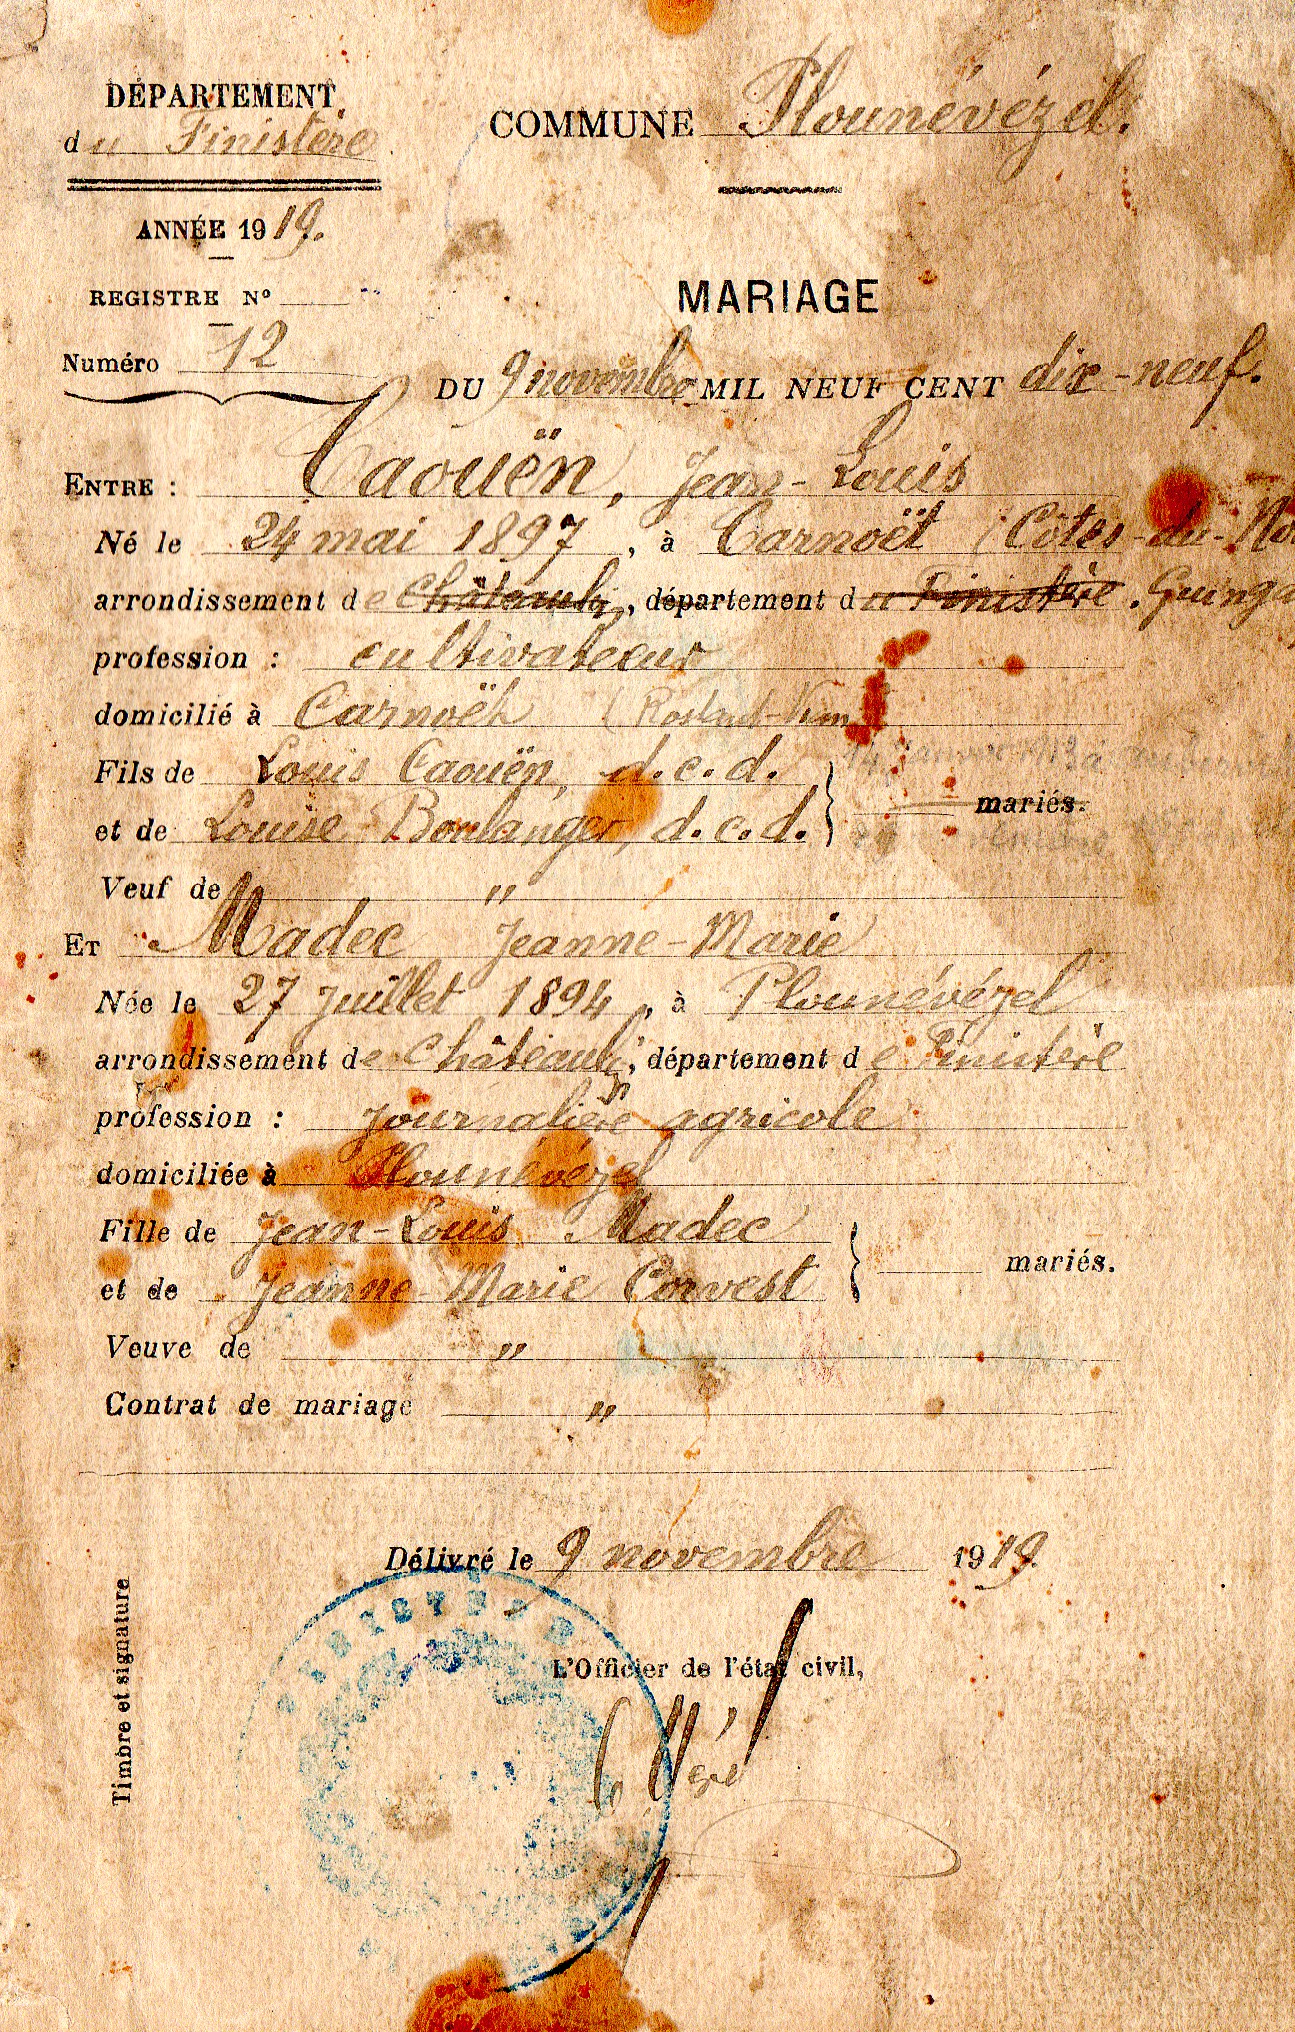 DÉPARTEMENT
du Finistère
COMMUNE Plounévézel.
ANNÉE 1919.
REGISTRE Nº
MARIAGE
Numéro 12
DU 9 novembre MIL NEUF CENT dix-neuf.
ENTRE : Caouën, Jean-Louis
Né le 24 mai 1897, à Carnoët (Côtes-du-No
arrondissement de Châteaulin, département du Finistère. Guinga
profession : cultivateur
domicilié à Carnoët
Fils de Louis Caouën, d.c.d.
14 janvier 1913 à
mariés.
et de Louise Boulanger, d.c.d.
Veuf de "
ET Madec Jeanne-Marie
Née le 27 juillet 1894, à Plounévézel
arrondissement de Châteaulin, département de Finistère
profession : journalière agricole
domiciliée à Plounévézel
Fille de Jean-Louis Madec
mariés.
et de Jeanne-Marie Corvest
Veuve de "
Contrat de mariage "
Délivré le 9 novembre 1919.
L'Officier de l'état civil,
Timbre et signature
FINISTÈRE